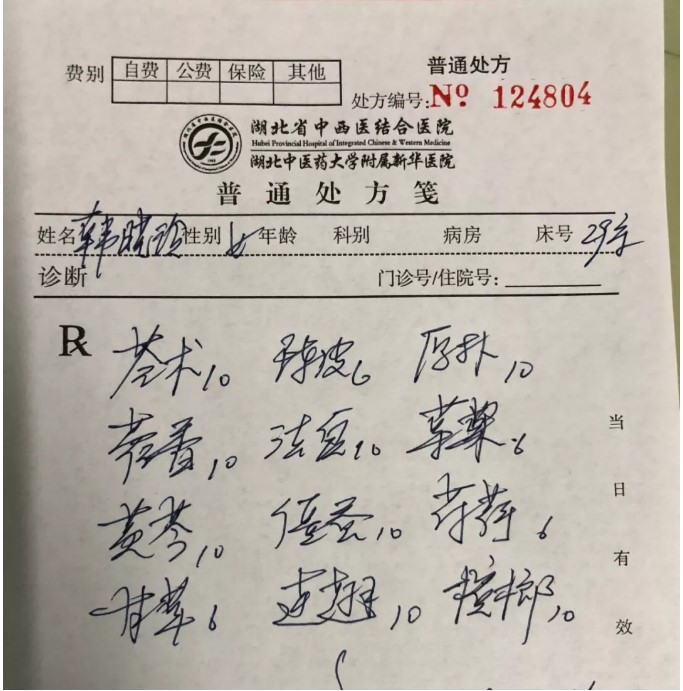 普通处方
费别 自费 公费 保险 其他
处方编号:Nº 124804
湖北省中西医结合医院
Hubei Provincial Hospital of Integrated Chinese & Western Medicine
湖北中医药大学附属新华医院
普通处方笺
姓名 韩晓玲 性别 女 年龄 科别 病房 床号 29岁
诊断 门诊号/住院号:
R 苍术10 陈皮6 厚朴10
藿香10 淡豆10 草果6
黄芩10 僵蚕10 薄荷6
甘草6 连翘10 槟榔10
当日有效